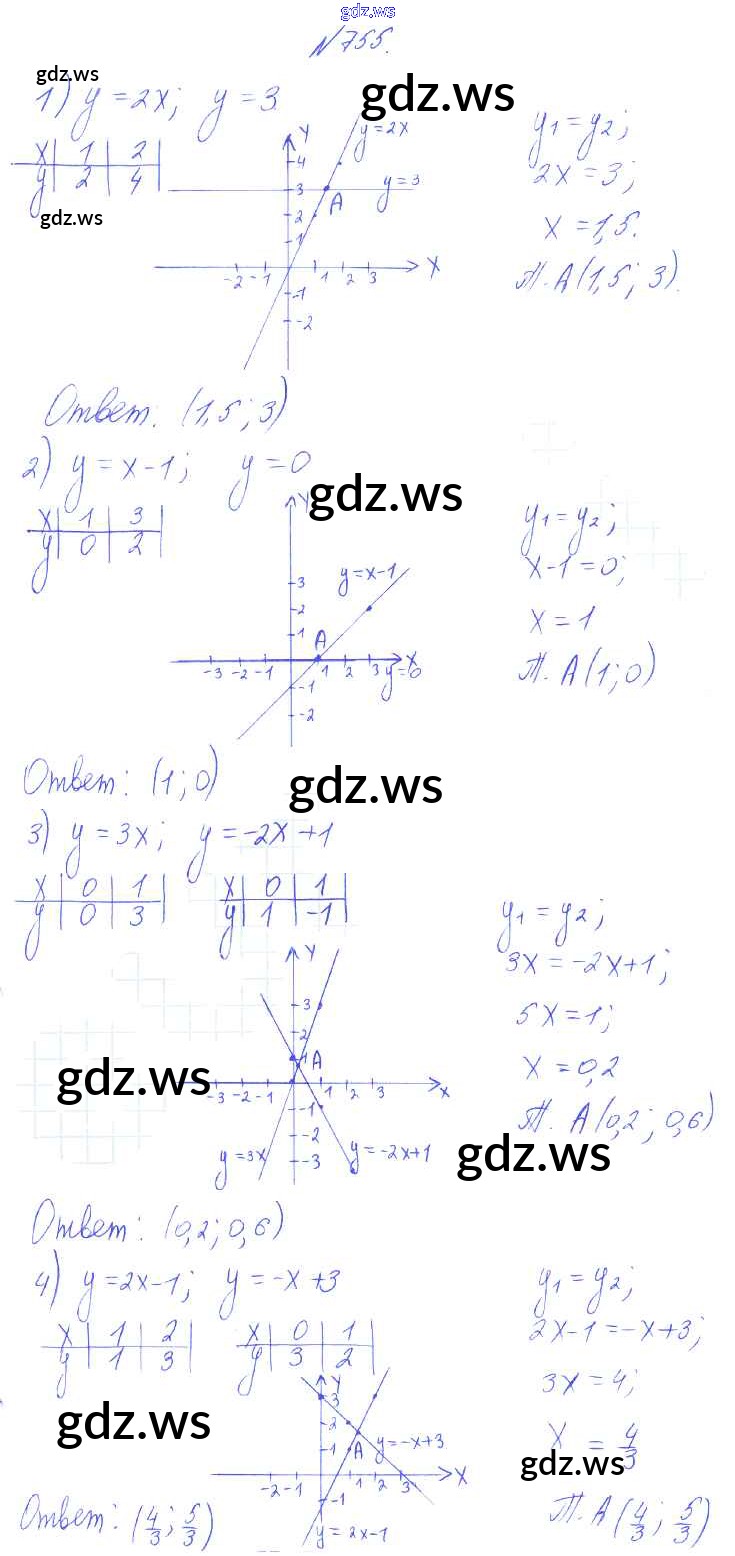 gdz.ws
№755.
gdz.ws
1) y = 2x; y = 3
gdz.ws
x | 1 | 2
y | 2 | 4
gdz.ws
y=2x
y=3
A
Y
4
3
2
1
-2 -1 1 2 3 X
-1
-2
y₁ = y₂;
2x = 3;
x = 1,5.
т. A(1,5; 3).
Ответ: (1,5; 3)
2) y = x-1; y = 0
gdz.ws
x | 1 | 3
y | 0 | 2
Y
y=x-1
3
2
1
A
-3 -2 -1 1 2 3 X
y=0
-1
-2
y₁ = y₂;
x-1=0;
x = 1
т. A(1; 0)
Ответ: (1; 0)
gdz.ws
3) y = 3x; y = -2x+1
x | 0 | 1
y | 0 | 3
x | 0 | 1
y | 1 | -1
Y
3
2
1
A
-3 -2 -1 1 2 3 x
-1
-2
-3
y=3x
y=-2x+1
y₁ = y₂;
3x = -2x+1;
5x = 1;
x = 0,2
т. A(0,2; 0,6)
gdz.ws
gdz.ws
Ответ: (0,2; 0,6)
4) y = 2x-1; y = -x+3
x | 1 | 2
y | 1 | 3
x | 0 | 1
y | 3 | 2
Y
3
2
1
A
y=-x+3
-2 -1 1 2 3 X
-1
y = 2x-1
y₁ = y₂;
2x-1=-x+3;
3x = 4;
x = 4/3
т. A(4/3; 5/3)
gdz.ws
gdz.ws
Ответ: (4/3; 5/3)